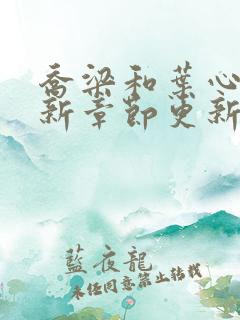 喬梁和葉心
新章節更新
藍夜龍
未经同意禁止转载